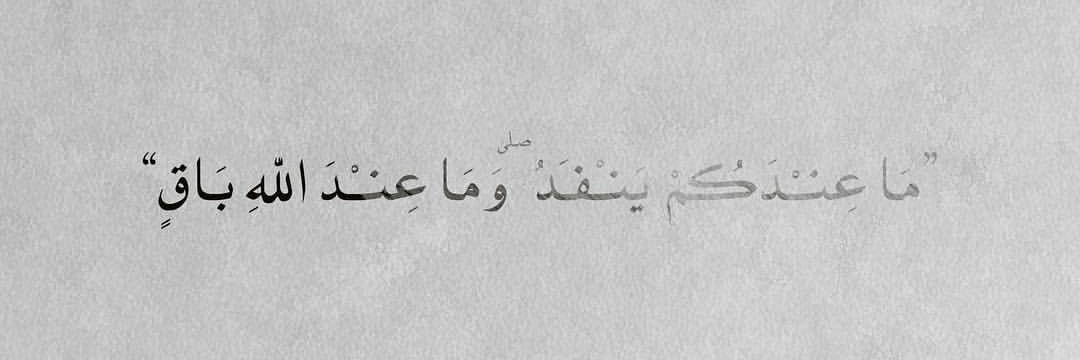 ”مَا عِنْدَكُمْ يَنْفَدُ ۖ وَمَا عِنْدَ اللّٰهِ بَاقٍ“